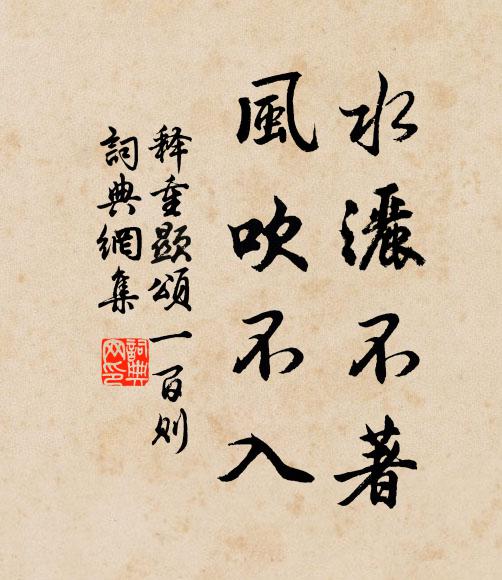 水灑不著
風吹不入
釋重顯頌一百則
詞典網集
詞典
网印